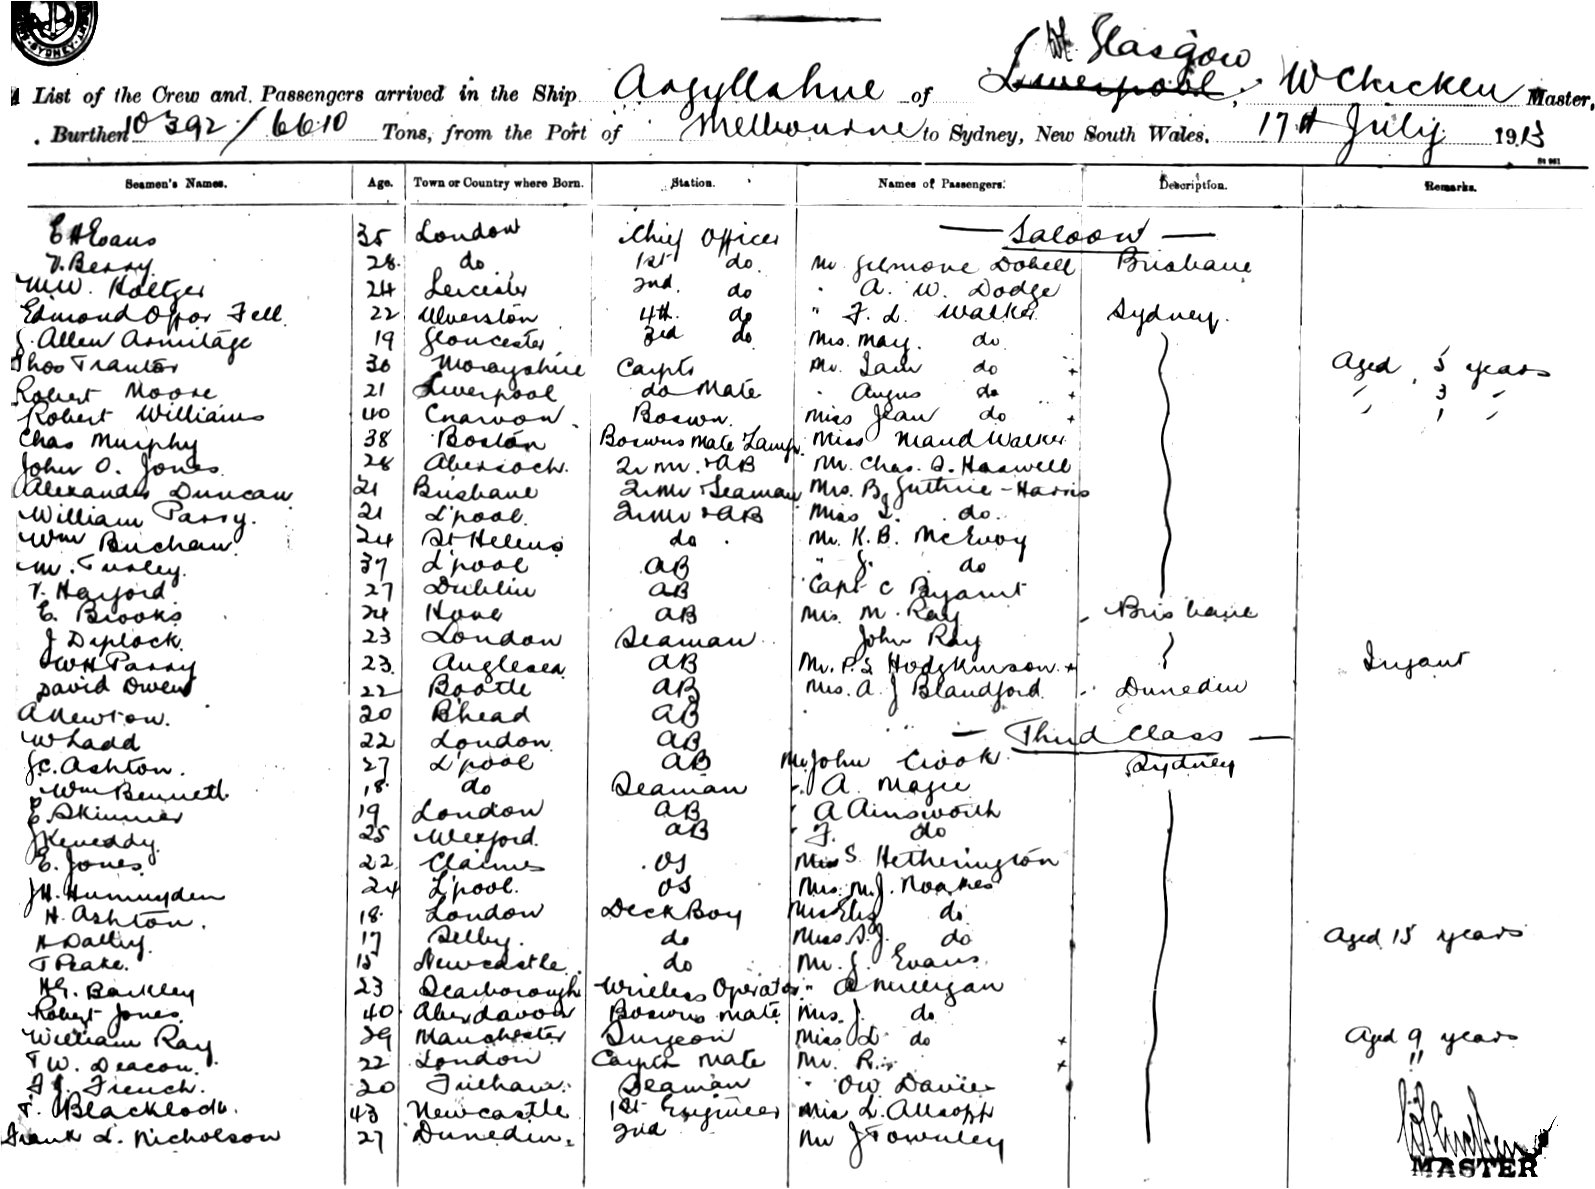 SYDNEY
Glasgow
List of the Crew and Passengers arrived in the Ship Argyllshire of Liverpool, W Chicken Master,
Burthen 10392/6610 Tons, from the Port of Melbourne to Sydney, New South Wales, 17th July 1913
Seamen's Names. Age. Town or Country where Born. Station. Names of Passengers. Description. Remarks.
E H Evans 35 London Chief Officer — Saloon —
V. Berry 28 do 1st do Mr Gilmore Dobell Brisbane
M.W. Holtzer 24 Leicester 2nd. do " A. W. Dodge
Edmond Offor Fell 22 Ulverston 4th. do " F. L. Walker Sydney
J. Allen Armitage 19 Gloucester 3rd do Mrs. May. do
Thos Trantor 30 Morayshire Carptr Mr. Iain do + Aged 5 years
Robert Moore 21 Liverpool do Mate " Angus do + " 3 "
Robert Williams 40 Cnarvon Boswn. Miss Jean do + " 1 "
Chas Murphy 38 Boston Boswns Mate Lamps Miss Maud Walker
John O. Jones 28 Abersoch. 2r Mr. + AB Mr. Chas. S. Haswell
Alexander Duncan 21 Brisbane 2r Mr + Seaman Mrs. B. Guthrie-Harris
William Parry. 21 L'pool. 2r Mr + AB Miss I. do.
Wm Buchan 24 St Helens do. Mr. K.B. McEvoy
M. Turley. 37 L'pool AB " J. do
V. Harford 27 Dublin AB Capt C Bryant
E. Brooks 24 Hove AB Mrs. M. Ray Brisbane
J Diplock. 23 London Seaman John Ray
WH Parry 23. Anglesea AB Mr. P.S Hodgkinson + Infant
David Owen 22 Bootle AB Mrs. A. J Blandford Dunedin
A Newton. 20 B'head AB
W Ladd 22 London AB — Third Class —
J.C. Ashton. 27 L'pool AB Mr John Crook Sydney
Wm Bennett 18 do Seaman " A. Magee
E. Skinner 19 London AB " A Ainsworth
J Keneddy. 25 Wexford. AB " F. do
E. Jones 22 Claines OS Miss S. Hetherington
J.H. 24 L'pool. OS Mrs. M.J. Noakes
H. Ashton. 18 London Deck Boy Miss Elis do
H Dalby. 17 Selby. do Miss S.J. do Aged 15 years
T Peake. 15 Newcastle do Mr. J. Evans
HG. Barkley 23 Scarborough Wireless Operator " A Mulligan
Robert Jones 40 Aberdavon Boswns Mate Mrs. J. do
William Ray 29 Manchester Surgeon Miss L do + Aged 9 years
T W. Deacon. 22 London Carptr Mate Mr. R. + "
F J. French. 20 Seaman " OW Davies
T. Blacklock. 43 Newcastle 1st Engineer Miss L. Allsopp
Frank L. Nicholson 27 Dunedin. 2nd Mr J Townley
MASTER